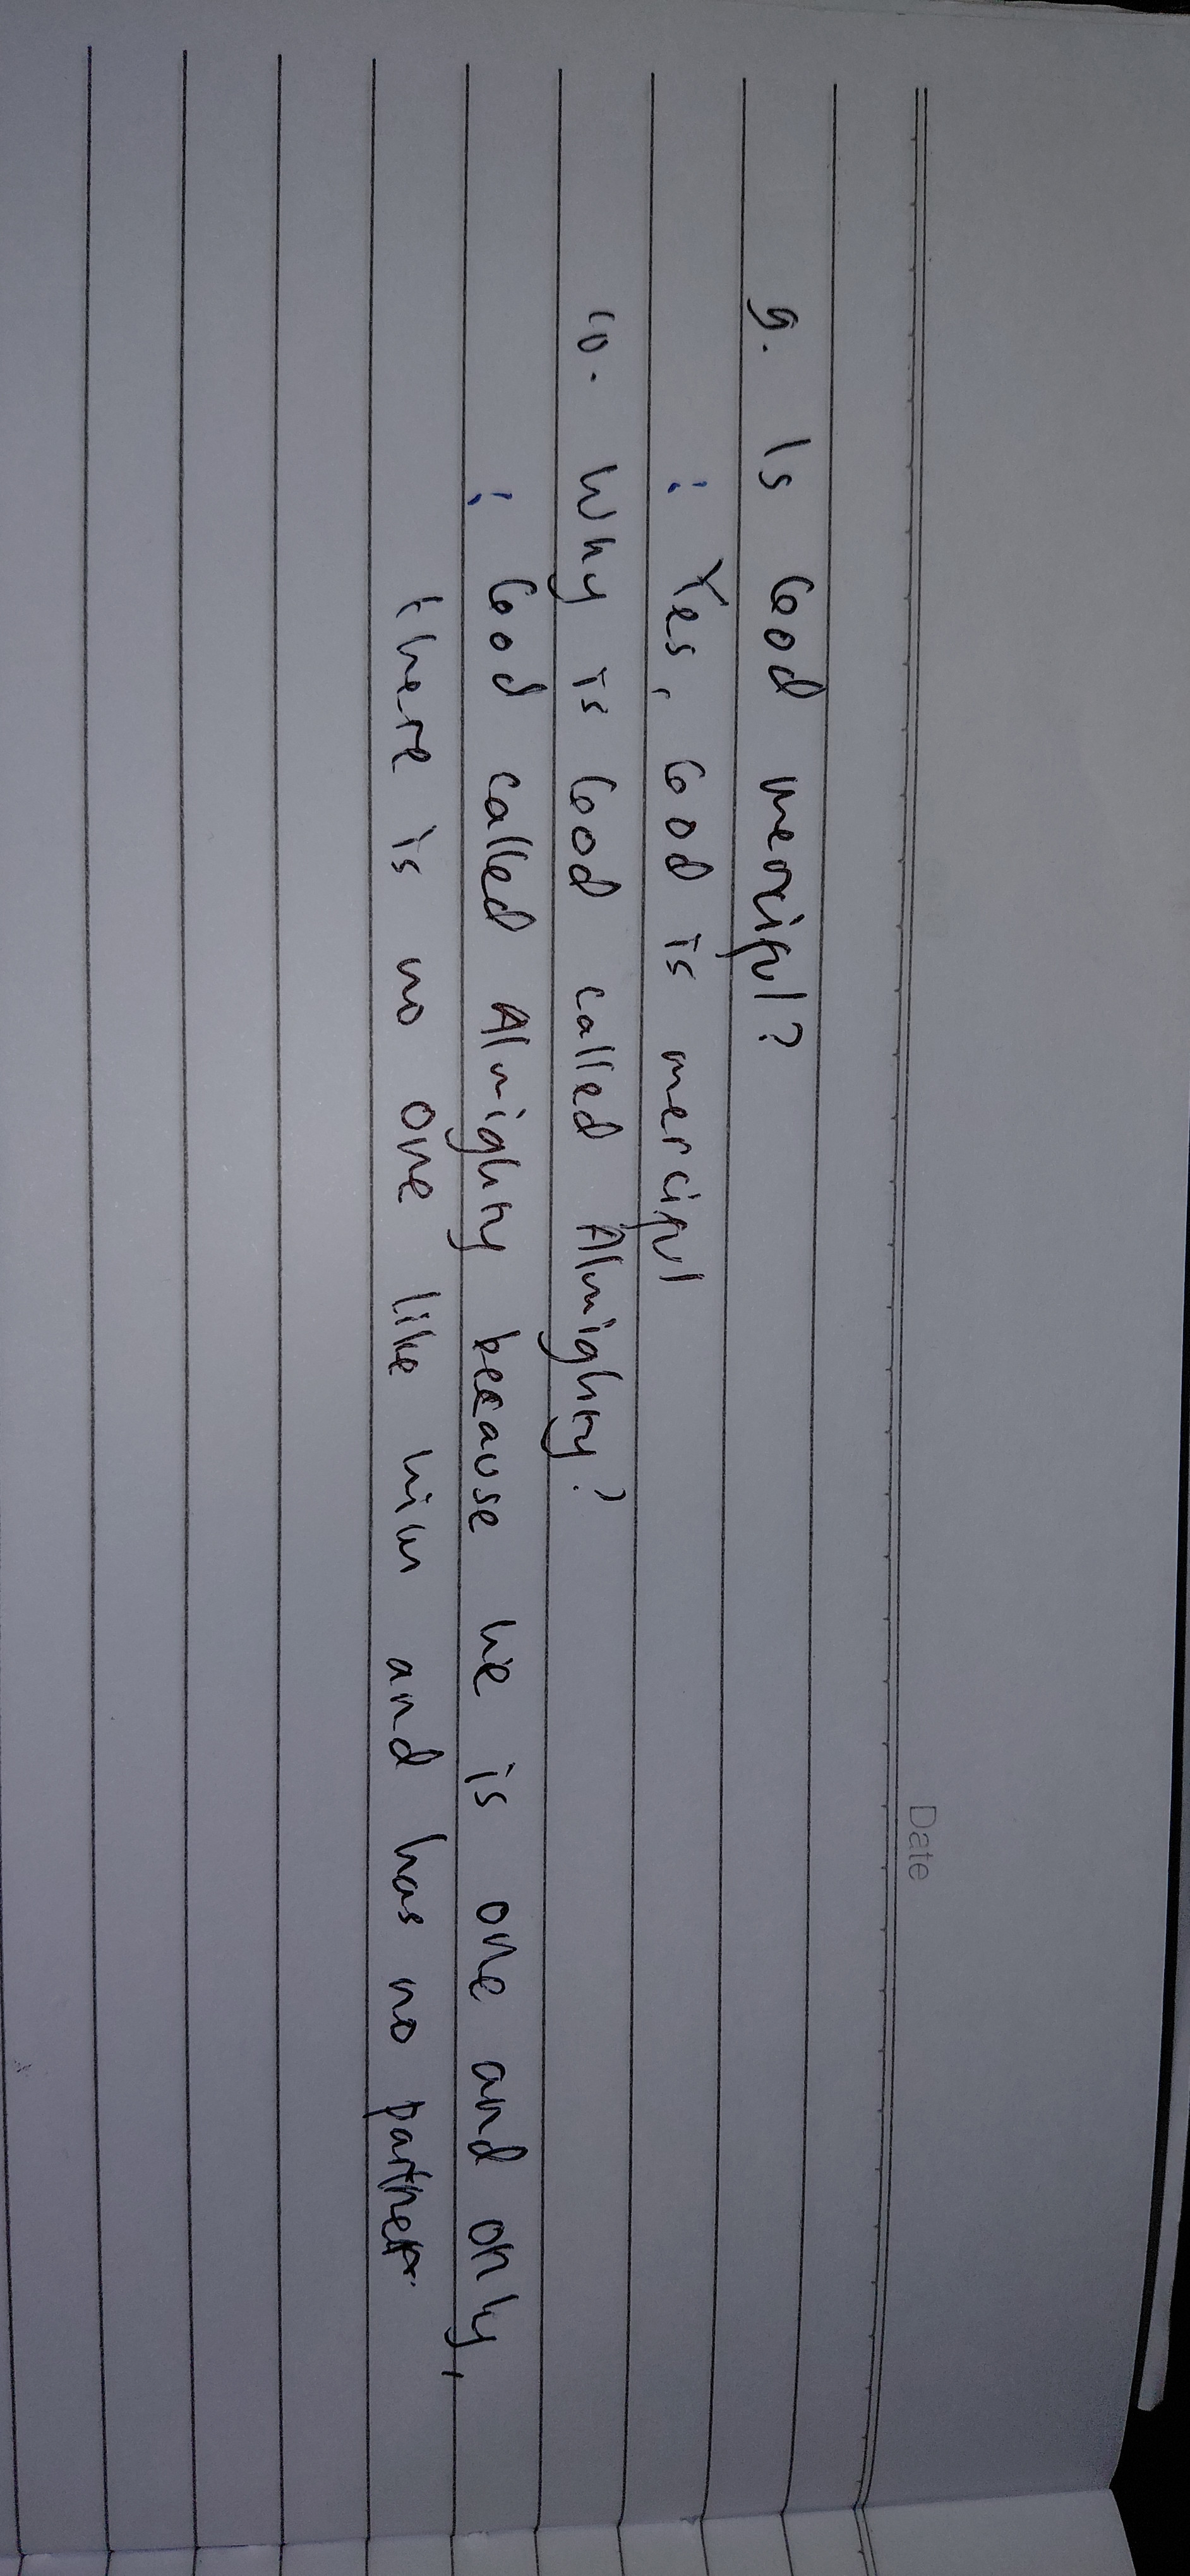 Date
9. Is God merciful?
: Yes, God is merciful
10. Why is God called Almighty?
: God called Almighty because he is one and only,
there is no one like him and has no partner.